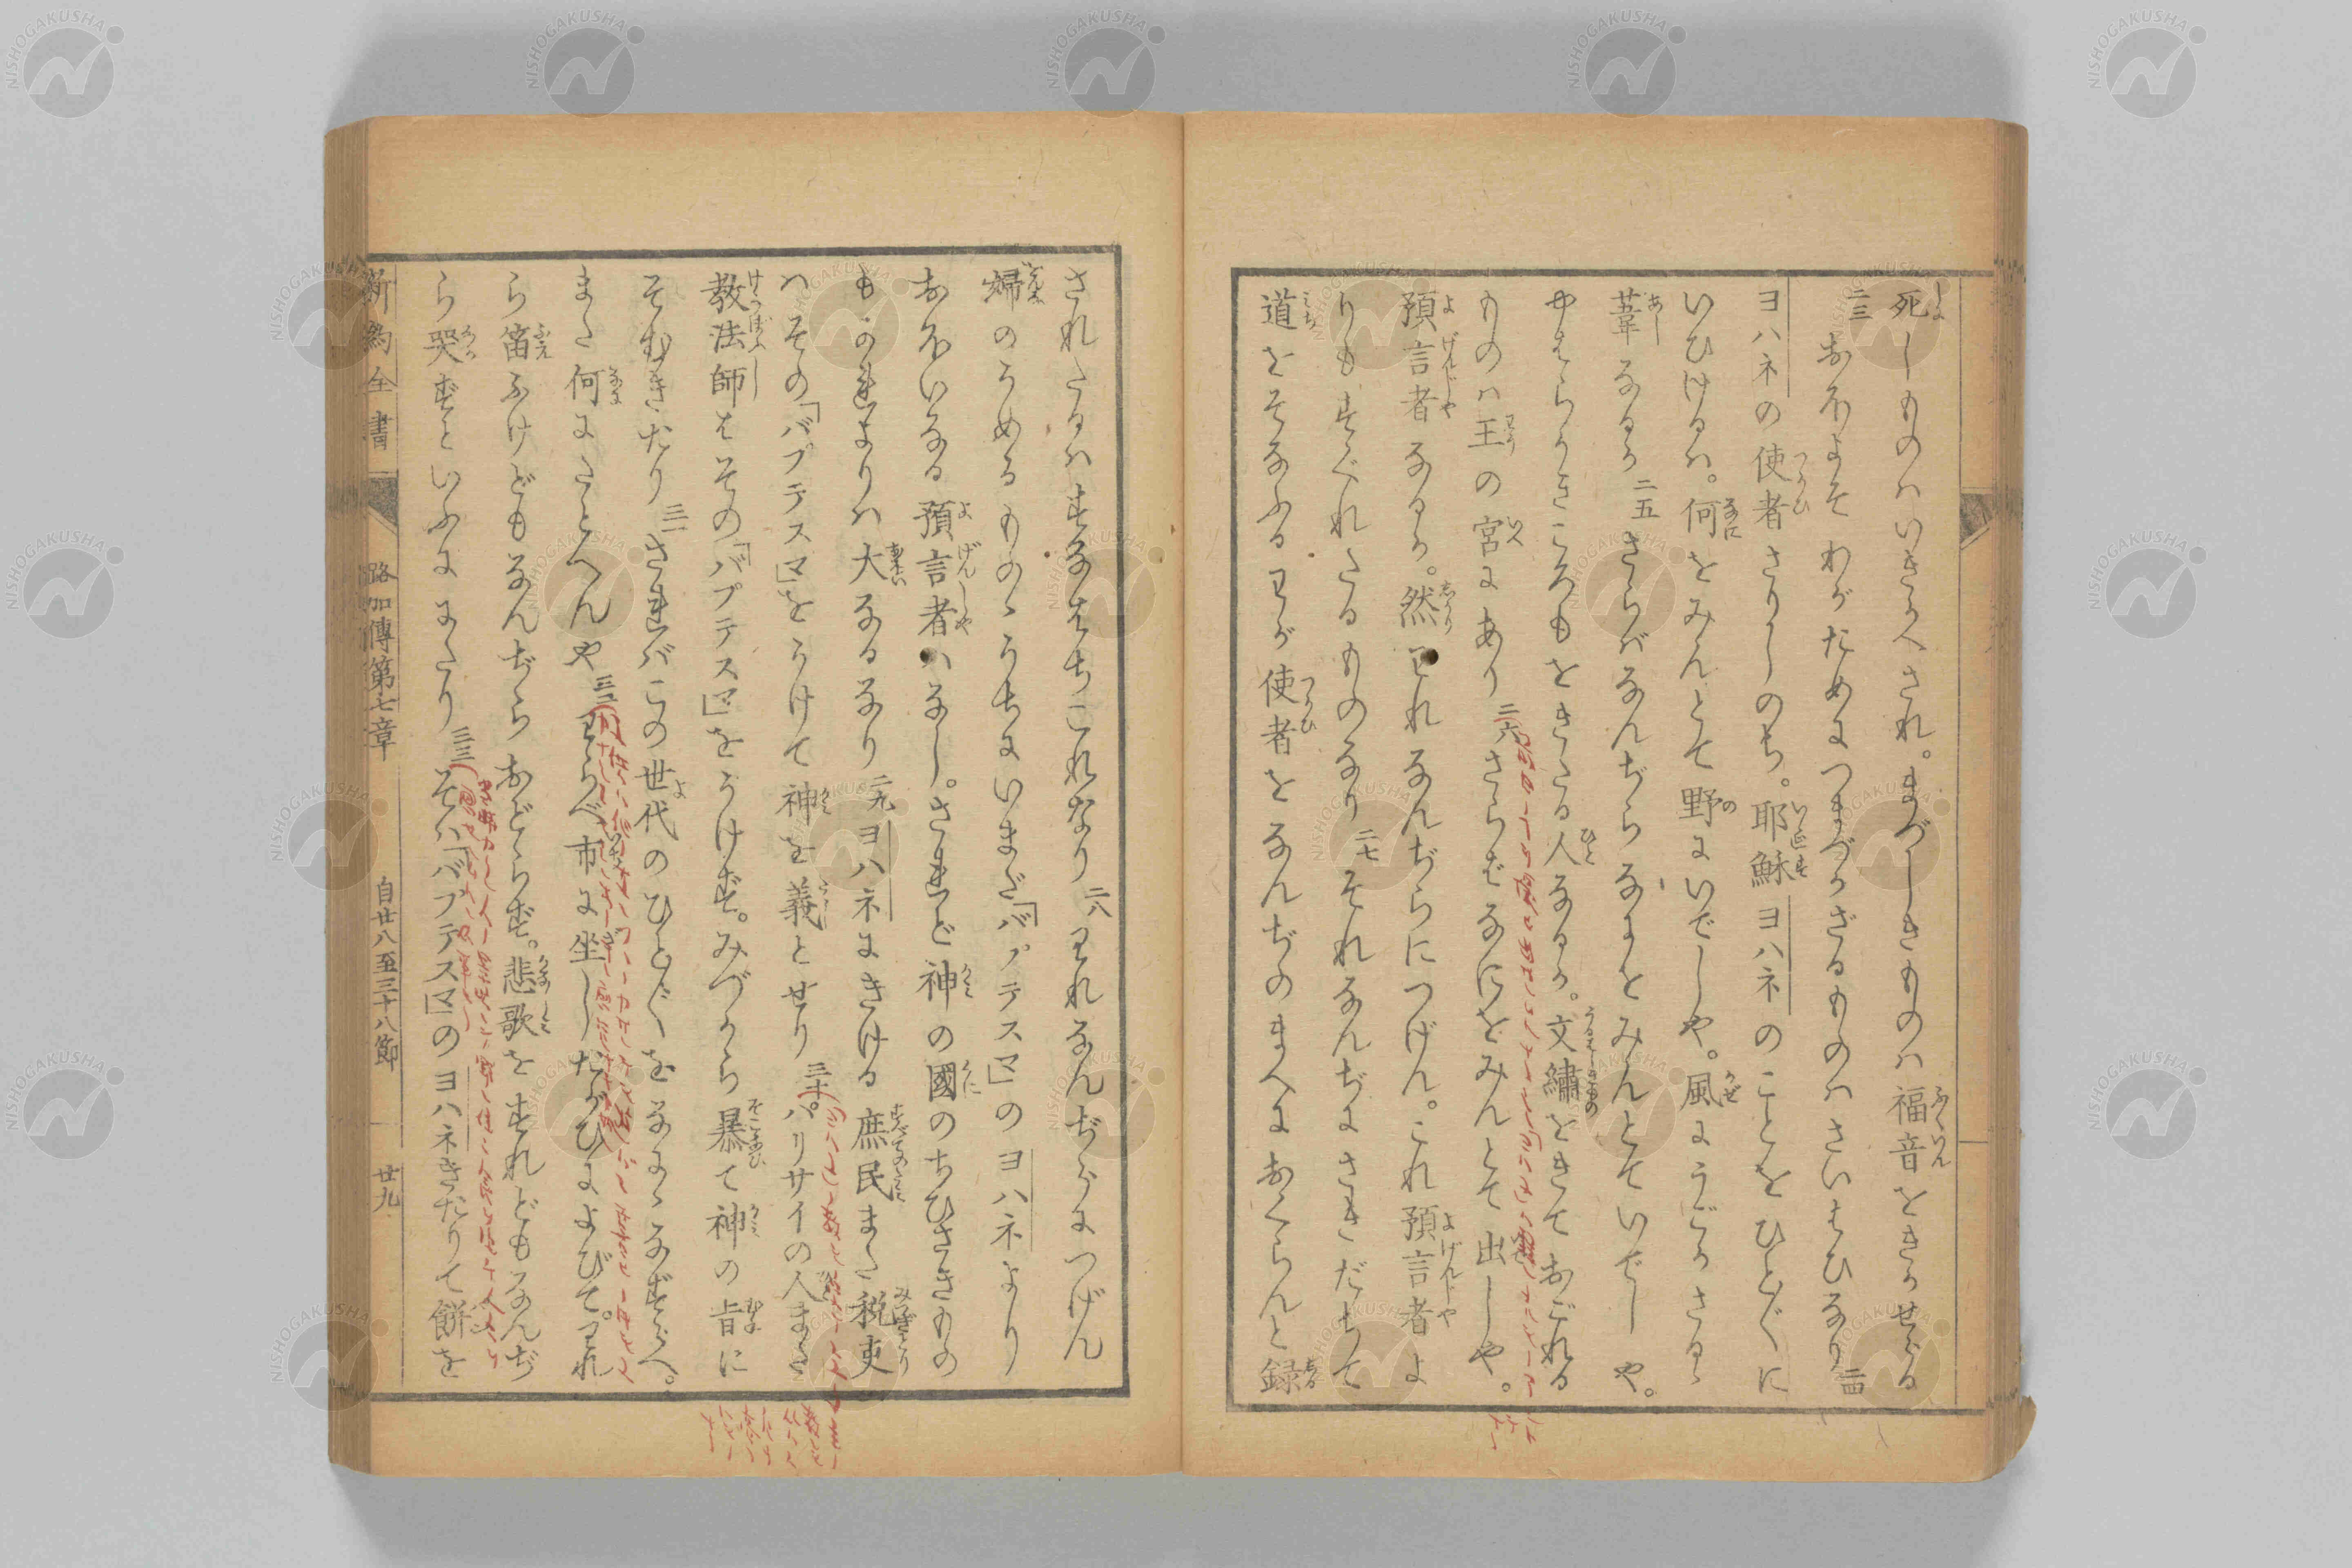 死しものハいきかへされ。まづしきものハ福音をきかせらる
二三 おほよそわがためにつまづかざるものハさいはひなり 二四
ヨハネの使者さりしのち。耶穌ヨハネのことをひとびとに
いひけるハ。何をみんとて野にいでしや。風にうごかさるゝ
葦なるか 二五 さらバなんぢらなにをみんとていでしや。
やはらかきころもをきたる人なるか。文繡をきておごれる
ものハ王の宮にあり 二六 さらばなにをみんとて出しや。
預言者なるか。然われなんぢらにつげん。これ預言者よ
りもすぐれたるものなり 二七 それなんぢにさきだちて
道をそなふるわが使者をなんぢのまへにおくらんと録
されたるハすなはちこれなり 二八 われなんぢらにつげん
婦のうめるものゝうちにいまだ「バプテスマ」のヨハネより
おほいなる預言者ハなし。されど神の國のちひさきもの
も かれよりハ大なるなり 二九 ヨハネにきける庶民また税吏
ハその「バプテスマ」をうけて神を義とせり 三十 パリサイの人また
教法師はその「バプテスマ」をうけず。みづから暴て神の旨に
そむきたり 三一 さればこの世代のひとびとをなにゝなずらへ。
また何にたとへんや 三二 わらべ市に坐したがひによびて。われ
ら笛ふけどもなんぢらおどらず。悲歌をすれどもなんぢ
ら哭ずといふににたり 三三 そハ「バプテスマ」のヨハネきたりて餅を
新約全書 路加傳第七章 自廿八至三十八節 廿九
NISHOGAKUSHA